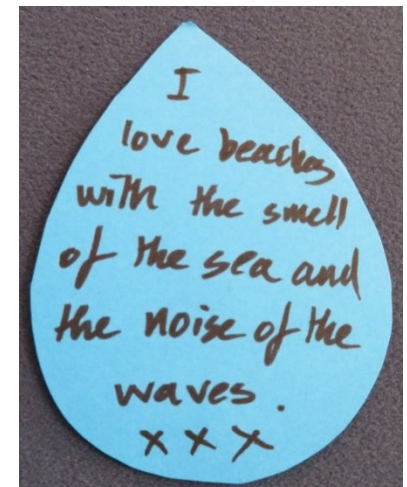 I
love beaches
with the smell
of the sea and
the noise of the
waves.
x x x